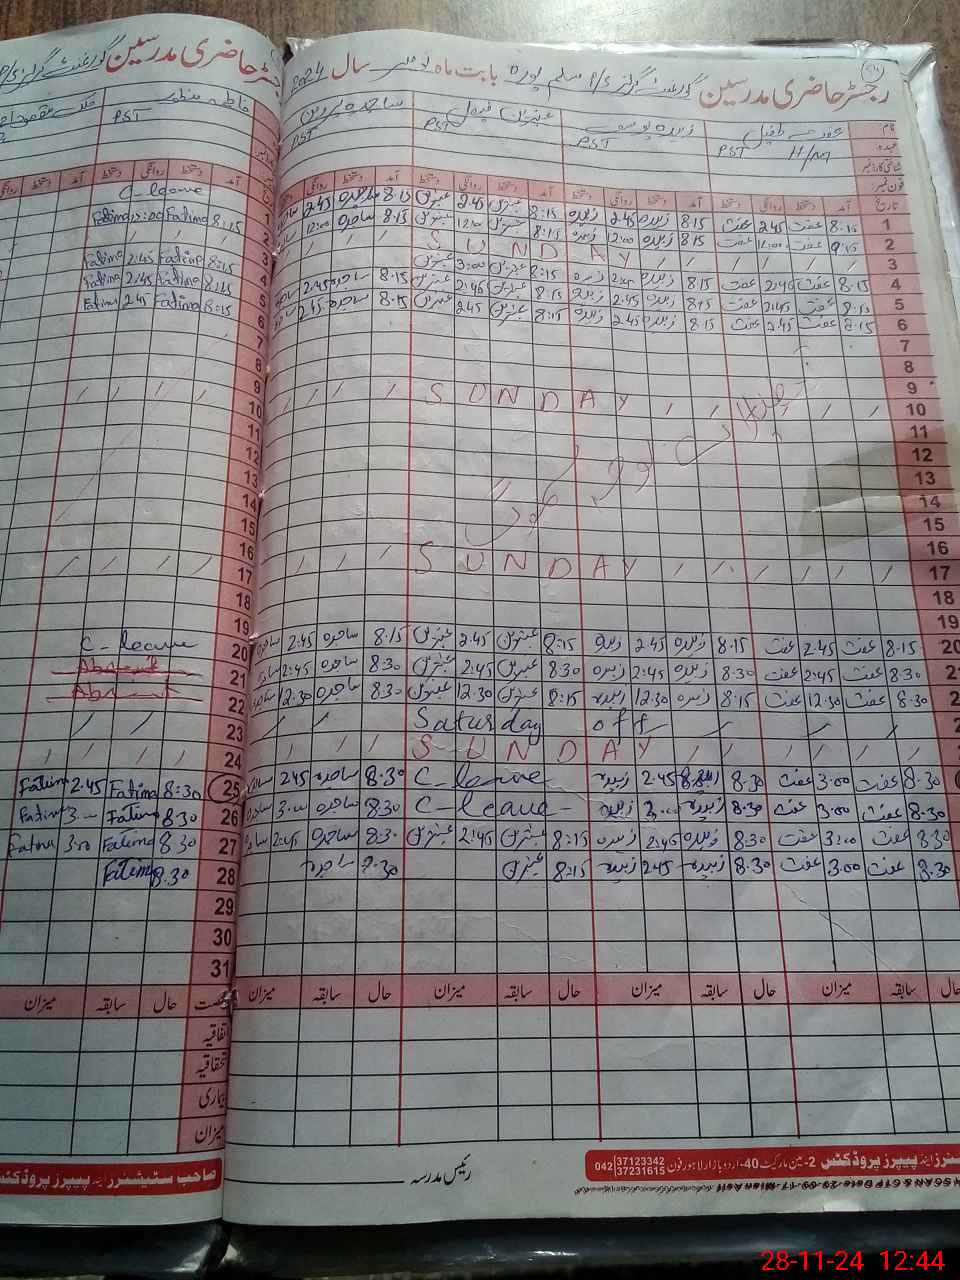 رجسٹر حاضری مدرسین گورنمنٹ گرلز P/S سلیم پورہ بابت ماہ نومبر سال 2024
نام عفت طفیل زبیدہ یوسف عنبرین فیصل ساجدہ پروین
عہدہ PST H/M PST PST PST
شناختی کارڈ نمبر
فون نمبر
تاریخ آمد دستخط روانگی دستخط آمد دستخط روانگی دستخط آمد دستخط روانگی دستخط آمد دستخط روانگی
1 8:15 عفت 2:45 عفت 8:15 زبیدہ 2:45 زبیدہ 8:15 عنبرین 2:45 عنبرین 8:15 ساجدہ 2:45
2 8:15 عفت 12:00 عفت 8:15 زبیدہ 12:00 زبیدہ 8:15 عنبرین 12:00 عنبرین 8:15 ساجدہ 12:00
3 SUNDAY
4 8:15 عفت 2:45 عفت 8:15 زبیدہ 2:45 زبیدہ 8:15 عنبرین 3:00 عنبرین
5 8:15 عفت 2:45 عفت 8:15 زبیدہ 2:45 زبیدہ 8:15 عنبرین 2:45 عنبرین 8:15 ساجدہ 2:45
6 8:15 عفت 2:45 عفت 8:15 زبیدہ 2:45 زبیدہ 8:15 عنبرین 2:45 عنبرین 8:15 ساجدہ 2:45
7
8
9
10 SUNDAY
11
12
13
14
15
16
17 SUNDAY
18
19
20 8:15 عفت 2:45 عفت 8:15 زبیدہ 2:45 زبیدہ 8:15 عنبرین 2:45 عنبرین 8:15 ساجدہ 2:45 ساجدہ
21 8:30 عفت 2:45 عفت 8:30 زبیدہ 2:45 زبیدہ 8:30 عنبرین 2:45 عنبرین 8:30 ساجدہ 2:45
22 8:30 عفت 12:30 عفت 8:15 زبیدہ 12:30 زبیدہ 8:15 عنبرین 12:30 عنبرین 8:30 ساجدہ 12:30
23 Saturday off
24 SUNDAY
25 8.30 عفت 3:00 عفت 8.30 زبیدہ 2.45 زبیدہ C-leave 8.30 ساجدہ 2:45
26 8.30 عفت 3:00 عفت 8:30 زبیدہ 3:00 زبیدہ C-leave 8:30 ساجدہ 3:00
27 8.30 عفت 3:00 عفت 8:30 زبیدہ 2:45 زبیدہ 8:15 عنبرین 2:45 عنبرین 8:30 ساجدہ 2:45
28 8.30 عفت 3:00 عفت 8.30 زبیدہ 2:45 زبیدہ 8:15 عنبرین 8.30 ساجدہ
29
30
31
حال سابقہ میزان حال سابقہ میزان حال سابقہ میزان حال سابقہ میزان
رئیس مدرسہ
پیپرز پروڈکٹس 2-مین مارکیٹ 40-اردو بازار لاہور فون 042 37123342
37231615
رجسٹر حاضری مدرسین گورنمنٹ گرلز P/S
فاطمہ منظور
PST
دستخط روانگی دستخط آمد
C-leave
8:15 Fatima 12:00 Fatima
8:15 Fatima 2:45 Fatima
8:15 Fatima 2:45 Fatima
8:15 Fatima 2:45 Fatima
C-leave
Absent
Absent
8:30 Fatima 2.45 Fatima
8.30 Fatima 3:00 Fatima
8.30 Fatima 3:00 Fatima
8.30 Fatima
رخصت حال سابقہ میزان
اتفاقیہ
استحقاقیہ
بیماری
میزان
صاحب سٹیشنرز اینڈ پیپرز پروڈکٹس
28-11-24 12:44